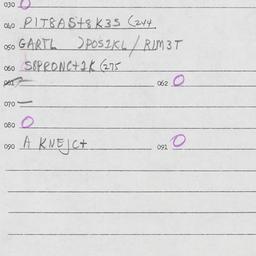 030 O
040 PITBAS+8K3S (244
050 GARTL )POSIKL/RIM3T
060 S8PRONC+1K (275
061 — 062 O
070 —
080 O
090 A KNEJC+ 091 O